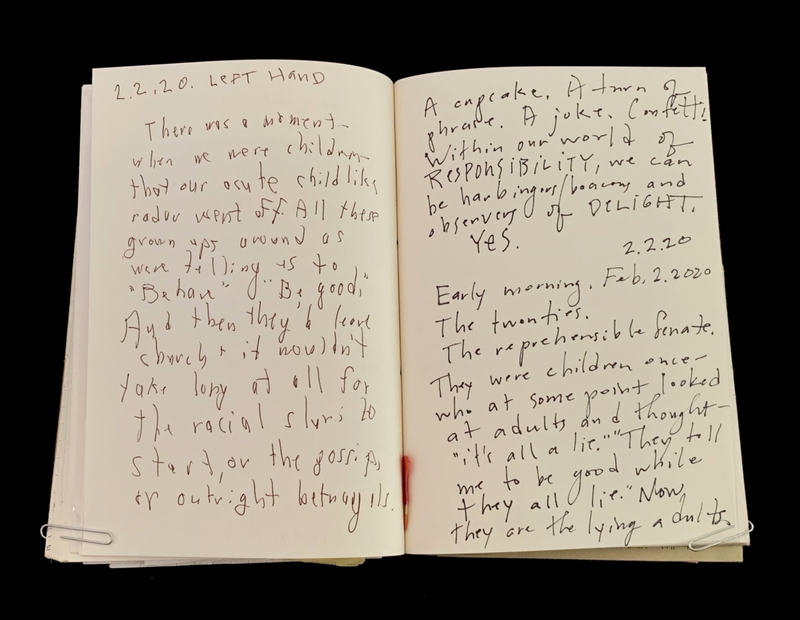 2.2.20. LEFT HAND
There was a moment—
when we were children—
that our acute childlike
radar went off. All these
grown ups around us
were telling us to
"Behave" "Be good,"
And then they'd leave
church & it wouldn't
take long at all for
the racial slurs to
start, or the gossip,
or outright betrayals.
A cupcake. A turn of
phrase. A joke. Confetti!
Within our world of
RESPONSIBILITY, we can
be harbingers/beacons and
observers of DELIGHT.
Yes.
2.2.20
Early morning. Feb. 2. 2020
The twenties.
The reprehensible Senate.
They were children once—
who at some point looked
at adults and thought—
"it's all a lie." "They tell
me to be good while
they all lie." Now,
they are the lying adults.